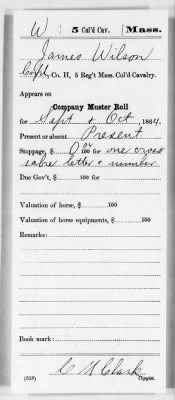 W 5 Col'd Cav. Mass.
James Wilson
Corpl, Co. H, 5 Reg't Mass. Col'd Cavalry.
Appears on
Company Muster Roll
for Sept & Oct, 1864.
Present or absent Present
Stoppage, $ 0 04/100 for one cross
sabre letter & number
Due Gov't, $ 100 for
Valuation of horse, $ 100
Valuation of horse equipments, $ 100
Remarks:
Book mark:
(358) Copyist.